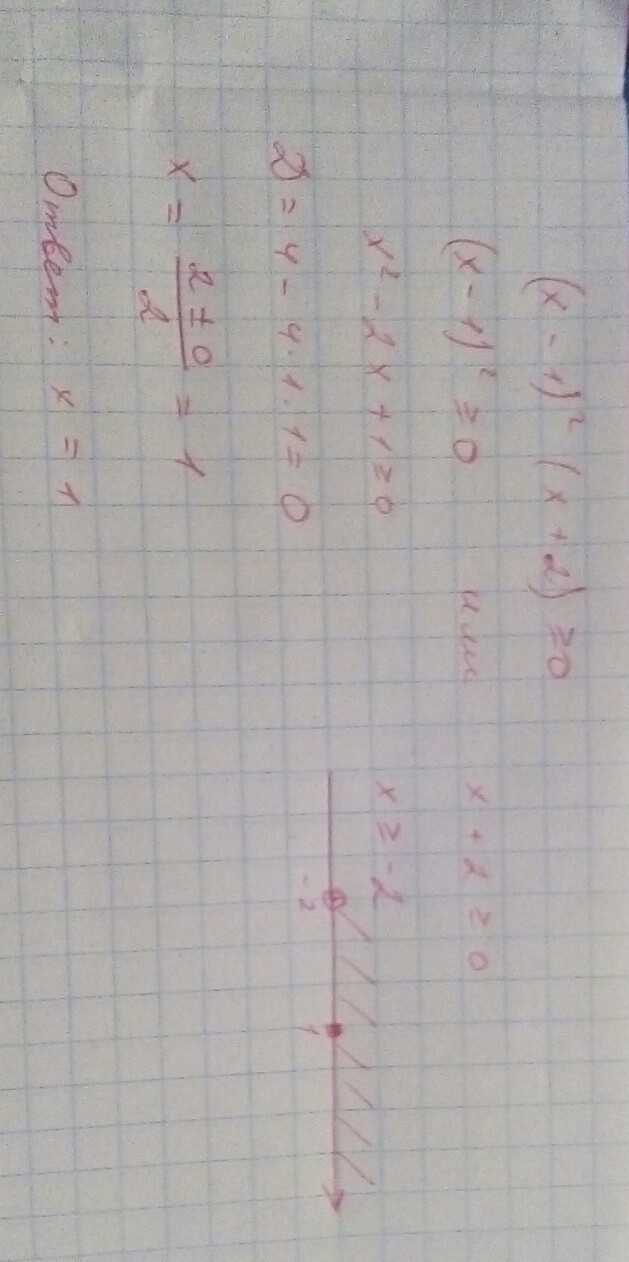 (x - 1)² (x + 2) ≥ 0
(x - 1)² ≥ 0 или x + 2 ≥ 0
x² - 2x + 1 ≥ 0 x ≥ -2
-2 1
D = 4 - 4 · 1 · 1 = 0
x = (2 ± 0)/2 = 1
Ответ: x = 1